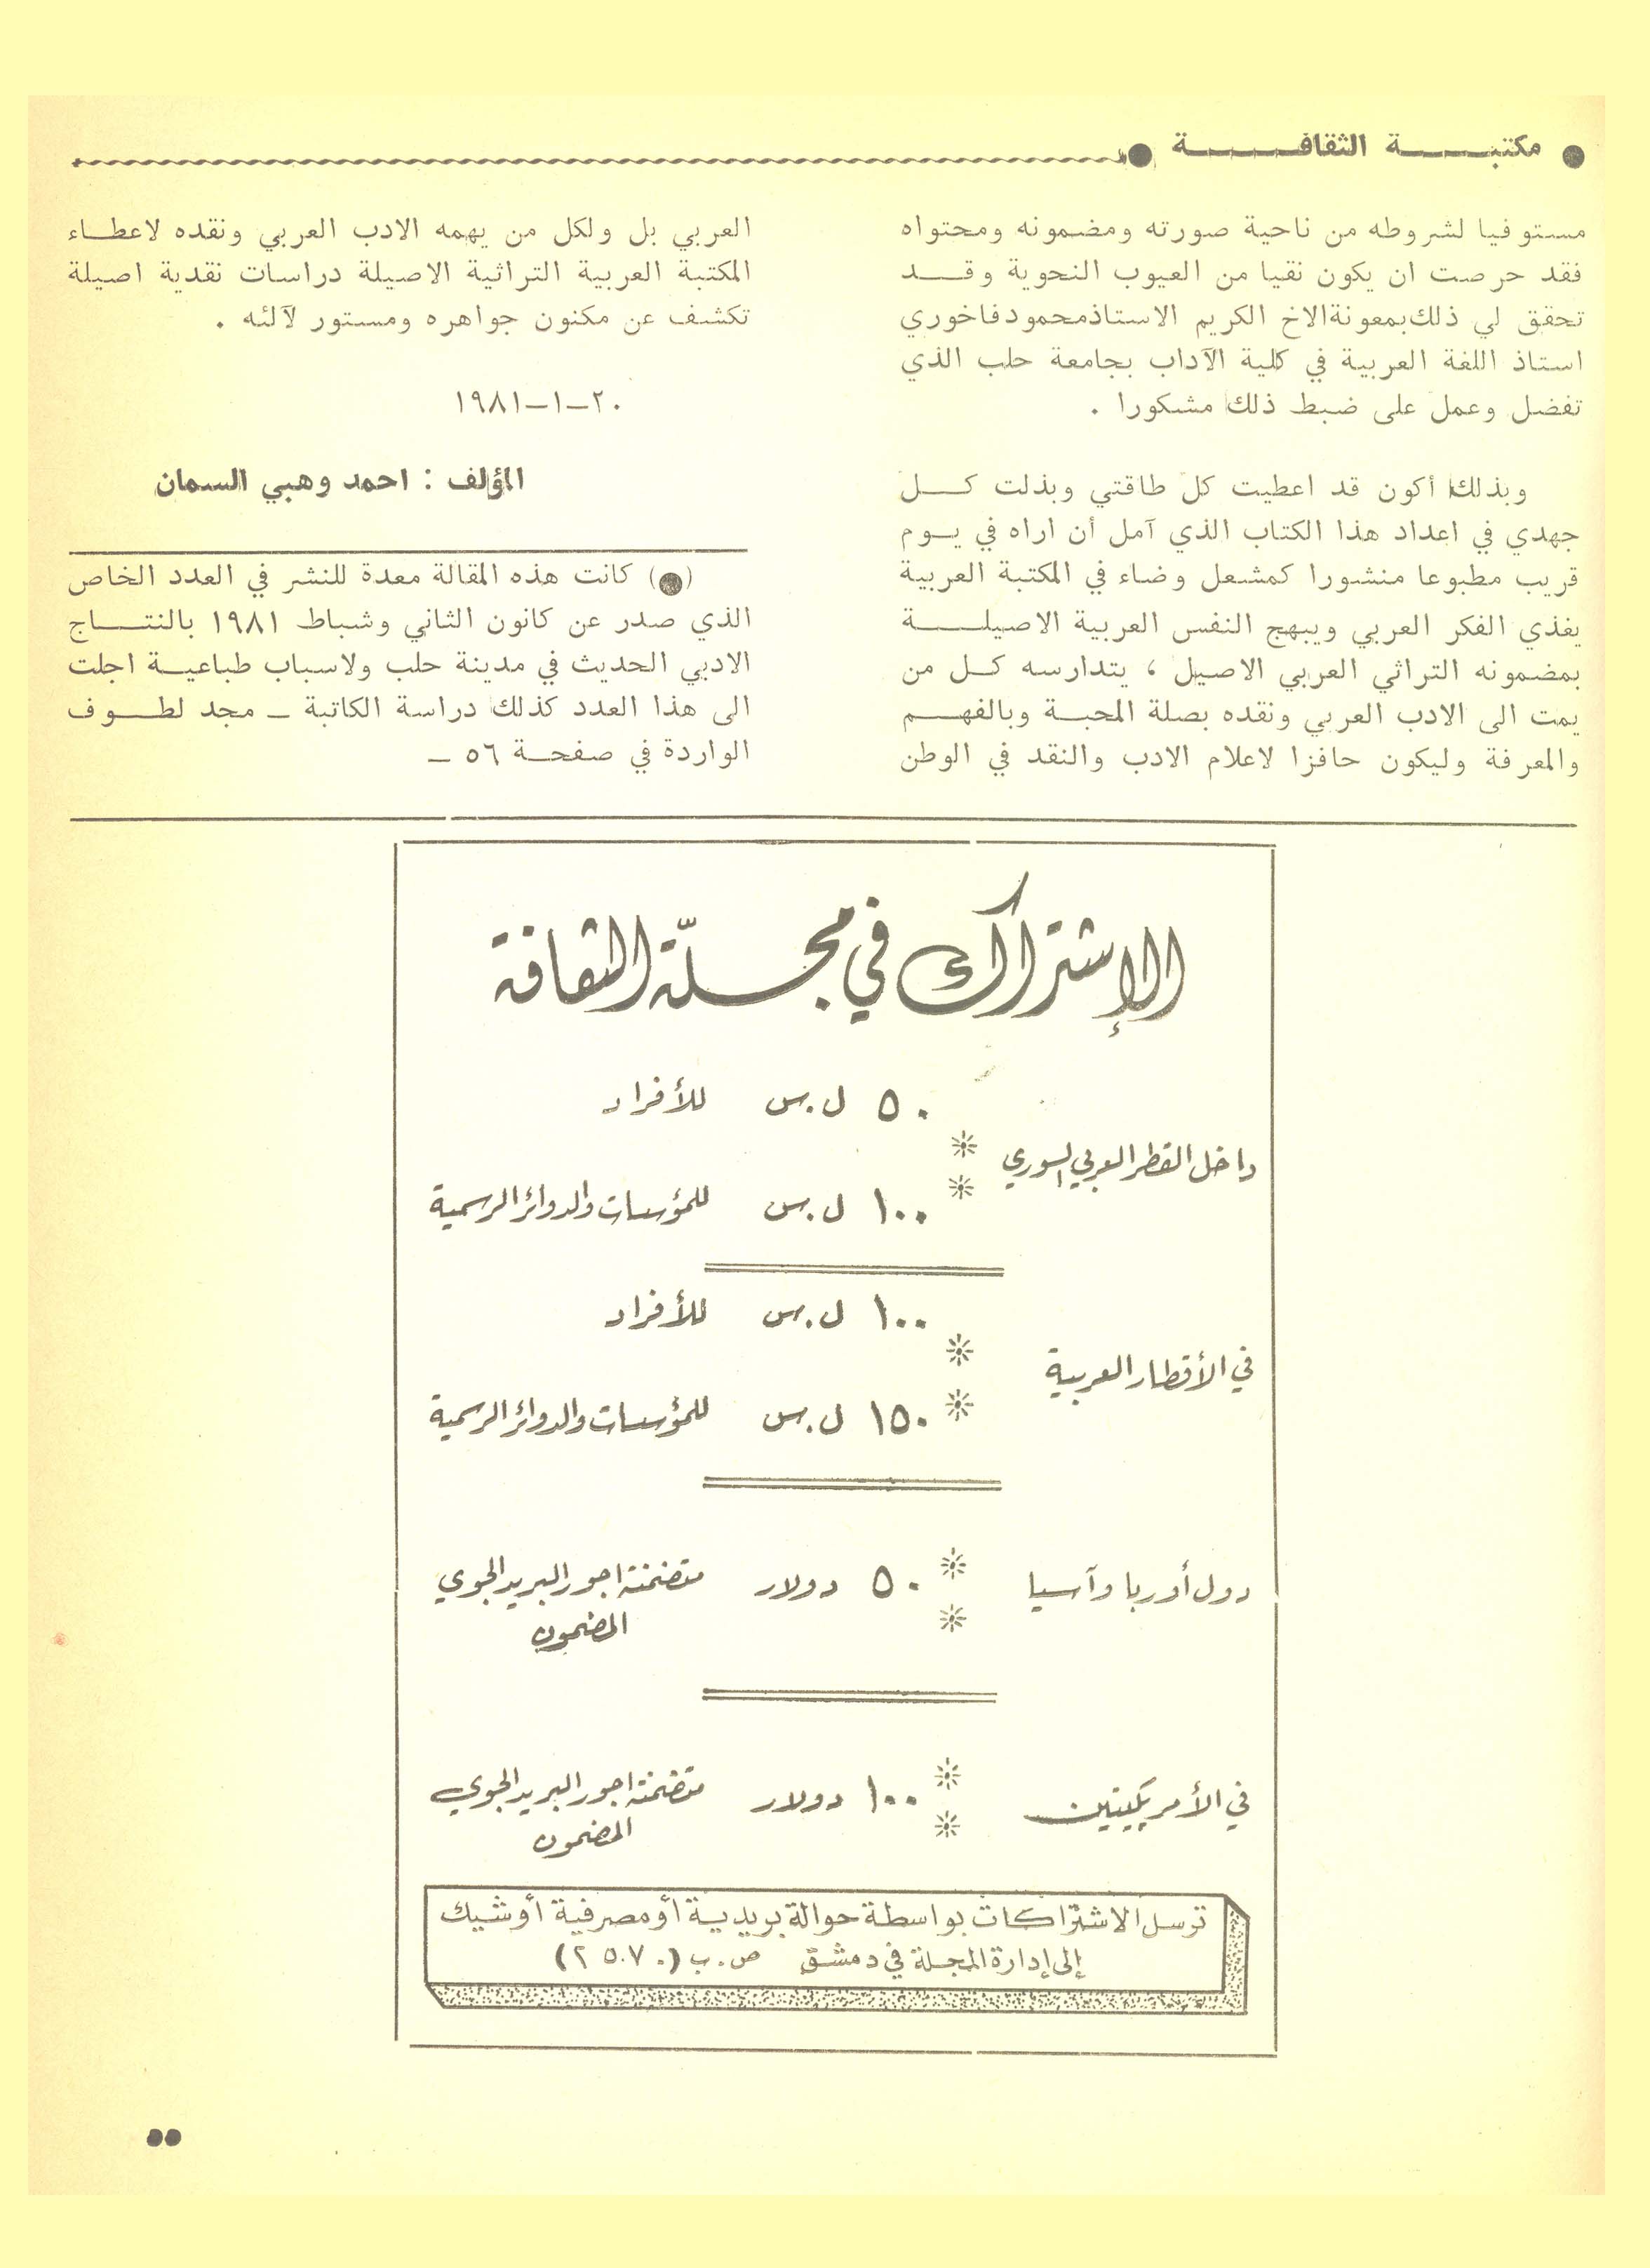 ● مكتبة الثقافة ●
مستوفيا لشروطه من ناحية صورته ومضمونه ومحتواه
فقد حرصت ان يكون نقيا من العيوب النحوية وقد
تحقق لي ذلك بمعونة الاخ الكريم الاستاذ محمود فاخوري
استاذ اللغة العربية في كلية الآداب بجامعة حلب الذي
تفضل وعمل على ضبط ذلك مشكورا .
وبذلك أكون قد اعطيت كل طاقتي وبذلت كل
جهدي في اعداد هذا الكتاب الذي آمل أن اراه في يوم
قريب مطبوعا منشورا كمشعل وضاء في المكتبة العربية
يغذي الفكر العربي ويبهج النفس العربية الاصيلة
بمضمونه التراثي العربي الاصيل ، يتدارسه كل من
يمت الى الادب العربي ونقده بصلة المحبة وبالفهم
والمعرفة وليكون حافزا لاعلام الادب والنقد في الوطن
العربي بل ولكل من يهمه الادب العربي ونقده لاعطاء
المكتبة العربية التراثية الاصيلة دراسات نقدية اصيلة
تكشف عن مكنون جواهره ومستور لآلئه .
٢٠–١–١٩٨١
المؤلف : احمد وهبي السمان
(●) كانت هذه المقالة معدة للنشر في العدد الخاص
الذي صدر عن كانون الثاني وشباط ١٩٨١ بالنتاج
الادبي الحديث في مدينة حلب ولاسباب طباعية اجلت
الى هذا العدد كذلك دراسة الكاتبة – مجد لطوف
الواردة في صفحة ٥٦ –
الإشتراك في مجلّة الثقافة
٥٠ ل.س للأفراد
داخل القطر العربي السوري
١٠٠ ل.س للمؤسسات والدوائر الرسمية
١٠٠ ل.س للأفراد
في الأقطار العربية
١٥٠ ل.س للمؤسسات والدوائر الرسمية
دول أوربا وآسيا ٥٠ دولار متضمنة اجور البريد الجوي
المضمون
في الأمريكيتين ١٠٠ دولار متضمنة اجور البريد الجوي
المضمون
ترسل الاشتراكات بواسطة حوالة بريدية أو مصرفية أو شيك
إلى إدارة المجلة في دمشق ص.ب (٢٥٧٠)
٥٥